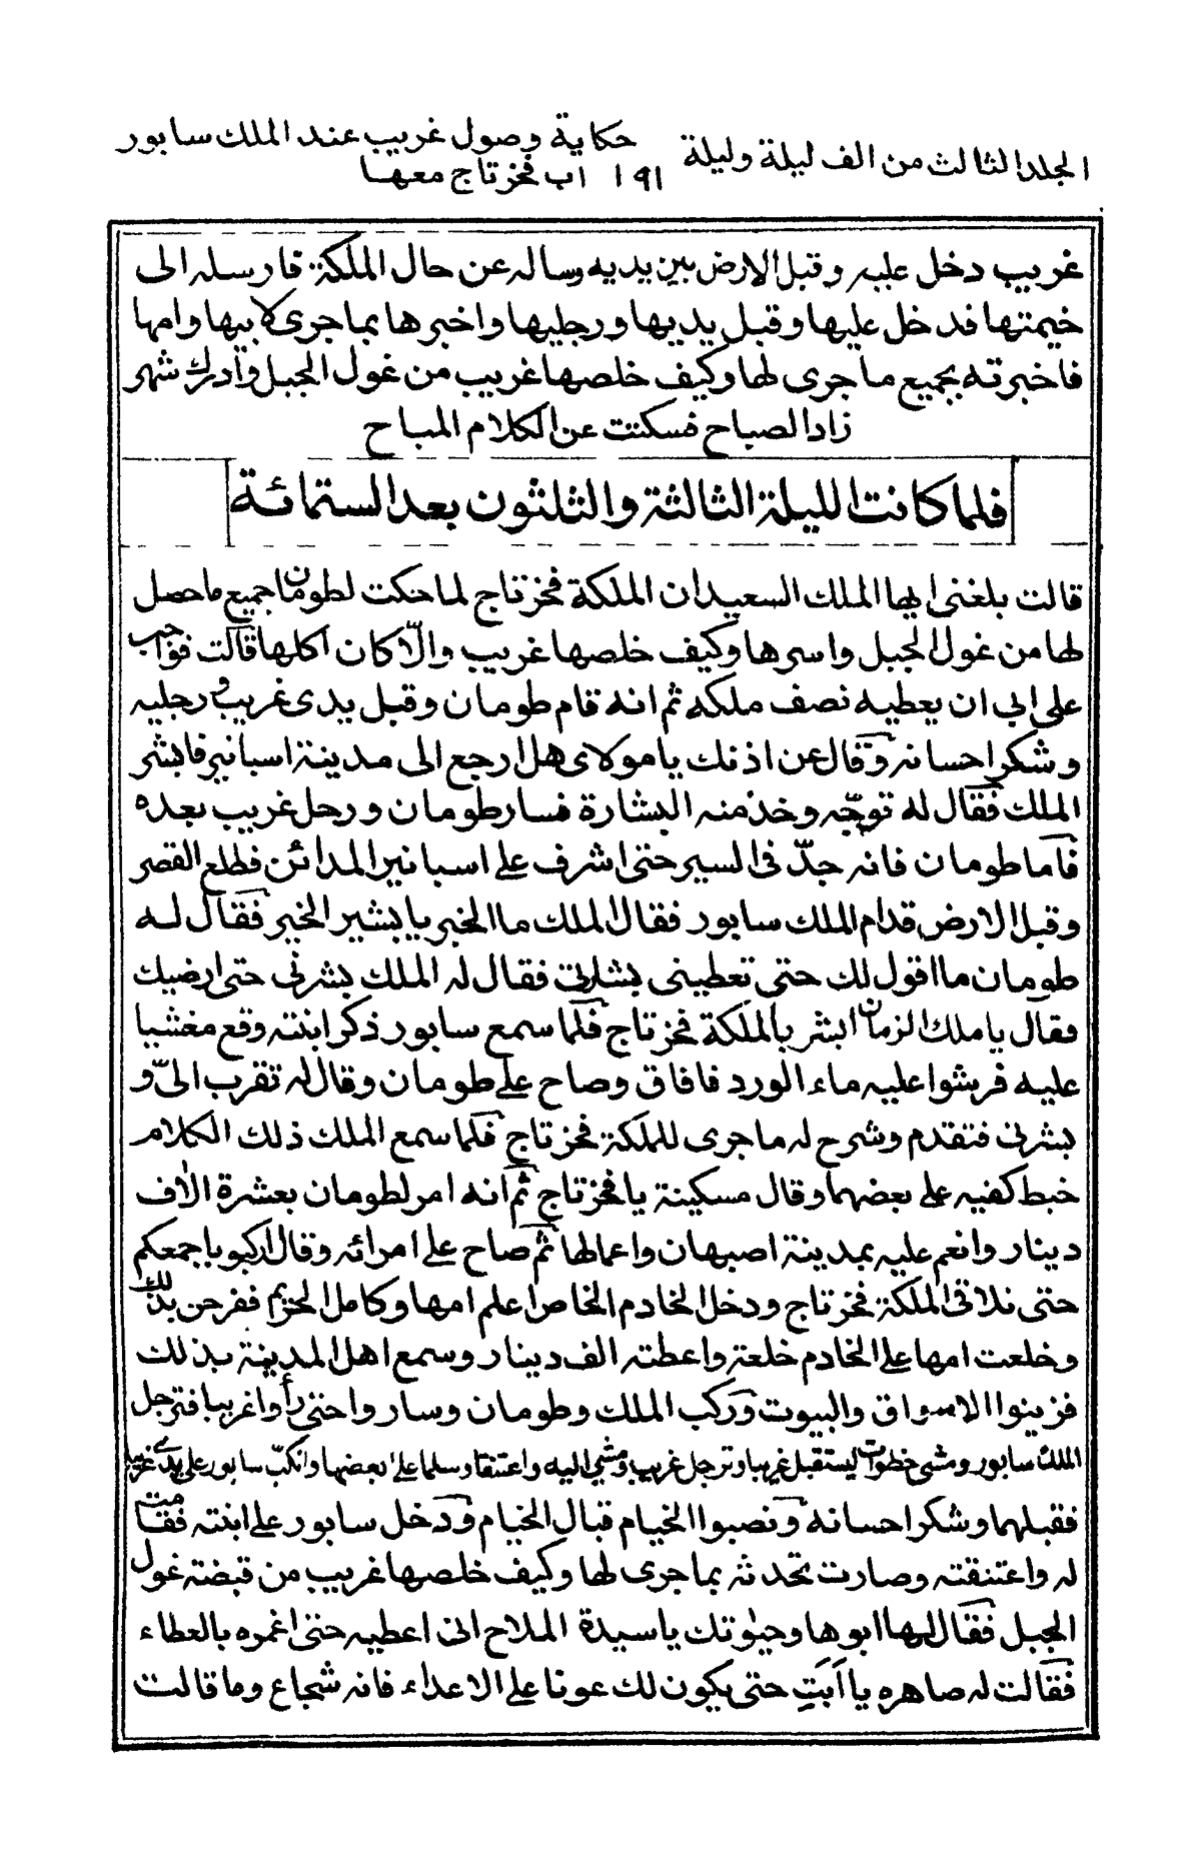 المجلد الثالث من الف ليلة وليلة حكاية وصول غريب عند الملك سابور
١٩١ اب فخرتاج معها
غريب دخل عليه وقبل الارض بين يديه وساله عن حال الملكة فارسله الى
خيمتها فدخل عليها وقبل يديها ورجليها واخبرها بما جرى لابيها وامها
فاخبرته بجميع ما جرى لها وكيف خلصها غريب من غول الجبل وادرك شهر
زاد الصباح فسكتت عن الكلام المباح
فلما كانت الليلة الثالثة والثلثون بعد الستمائة
قالت بلغنى ايها الملك السعيد ان الملكة فخرتاج لما حكت لطومان جميع ما حصل
لها من غول الجبل واسرها وكيف خلصها غريب والّا كان اكلها قالت فواجب
على ابى ان يعطيه نصف ملكه ثم انه قام طومان وقبل يدى غريب و رجليه
وشكر احسانه وقال عن اذنك يا مولاى هل ارجع الى مدينة اسبانير فابشر
الملك فقال له توجّه وخذ منه البشارة فسار طومان ورحل غريب بعده
فاما طومان فانه جدّ فى السير حتى اشرف على اسبانير المدائن فطلع القصر
وقبل الارض قدام الملك سابور فقال الملك ما الخبر يا بشير الخير فقال له
طومان ما اقول لك حتى تعطينى بشارتى فقال له الملك بشرنى حتى ارضيك
فقال يا ملك الزمان ابشر بالملكة فخرتاج فلما سمع سابور ذكر ابنته وقع مغشيا
عليه فرشوا عليه ماء الورد فافاق وصاح على طومان وقال له تقرب الىّ و
بشرنى فتقدم وشرح له ما جرى للملكة فخرتاج فلما سمع الملك ذلك الكلام
خبط كفيه على بعضهما وقال مسكينة يا فخرتاج ثم انه امر لطومان بعشرة الاف
دينار وانعم عليه بمدينة اصبهان واعمالها ثم صاح على امرائه وقال اركبوا باجمعكم
حتى نلاقى الملكة فخرتاج ودخل الخادم الخاص اعلم امها وكامل الحريم ففرحن بذلك
وخلعت امها على الخادم خلعة واعطته الف دينار وسمع اهل المدينة بذلك
فزينوا الاسواق والبيوت وركب الملك وطومان وساروا حتى رأوا غريبا فترجل
الملك سابور ومشى خطوات ليستقبل غريبا وترجل غريب ومشى اليه واعتنقا وسلما على بعضهما وانكبّ سابور على يدى غريب
فقبلهما وشكر احسانه ونصبوا الخيام قبال الخيام ودخل سابور على ابنته فقامت
له واعتنقته وصارت تحدثه بما جرى لها وكيف خلصها غريب من قبضة غول
الجبل فقال لها ابوها وحيوتك يا سيدة الملاح انى اعطيه حتى اغمره بالعطاء
فقالت له صاهره يا اَبَتِ حتى يكون لك عونا على الاعداء فانه شجاع وما قالت